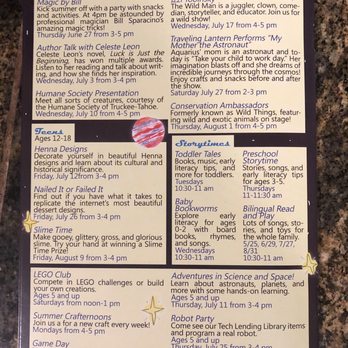 Magic by Bill
Kick summer off with a party with snacks
and activities. At 4pm be astounded by
professional magician Bill Sparacino's
amazing magic tricks!
Thursday June 27 from 3-5 pm
Author Talk with Celeste Leon
Celeste Leon's novel, Luck is Just the
Beginning, has won multiple awards.
Listen to her reading and talk about writ-
ing, and how she finds her inspiration.
Wednesday, July 3 from 3-4 pm
Humane Society Presentation
Meet all sorts of creatures, courtesy of
the Humane Society of Truckee-Tahoe.
Wednesday, July 10 from 4-5 pm
The Wild Man is a juggler, clown, come-
dian, storyteller, and educator. Join us for
a wild show!
Wednesday, July 17 from 4-5 pm
Traveling Lantern Performs "My
Mother the Astronaut"
Aquarius' mom is an astronaut and to-
day is "Take your child to work day." Her
imagination blasts off and she dreams of
incredible journeys through the cosmos!
Enjoy crafts and snacks before and after
the show.
Saturday July 27 from 2-3 pm
Conservation Ambassadors
Formerly known as Wild Things, featur-
ing wild and exotic animals on stage!
Thursday, August 1 from 4-5 pm
Teens
Ages 12-18
Henna Designs
Decorate yourself in beautiful Henna
designs and learn about its cultural and
historical significance.
Friday, July 12 from 3-4 pm
Nailed It or Failed It
Find out if you have what it takes to
replicate the internet's most beautiful
dessert designs.
Friday, July 26 from 3-4 pm
Slime Time
Make gooey, glittery, gross, and glorious
slime. Try your hand at winning a Slime
Time Prize!
Friday, August 9 from 3-4 pm
Storytimes
Toddler Tales
Books, music, early
literacy tips, and
more for toddlers.
Tuesdays
10:30-11 am
Baby
Bookworms
Explore early
literacy for ages
0-2 with board
books, rhymes,
and songs.
Wednesdays
10:30-11 am
Preschool
Storytime
Stories, songs,
and early literacy
tips for ages 3-5.
Thursdays
11-11:30 am
Bilingual Read
and Play
Lots of songs, sto-
ries, and toys for
the whole family.
5/25, 6/29, 7/27,
8/31
10:30-11 am
LEGO Club
Compete in LEGO challenges or build
your own creations.
Ages 5 and up
Saturdays from noon-1 pm
Summer Crafternoons
Join us for a new craft every week!
Mondays from 4-5 pm
Game Day
Adventures in Science and Space!
Learn about astronauts, planets, and
more with some hands-on learning.
Ages 5 and up
Thursday, July 11 from 3-4 pm
Robot Party
Come see our Tech Lending Library items
and program a real robot.
Ages 5 and up
Thursday, July 25 from 3-4 pm